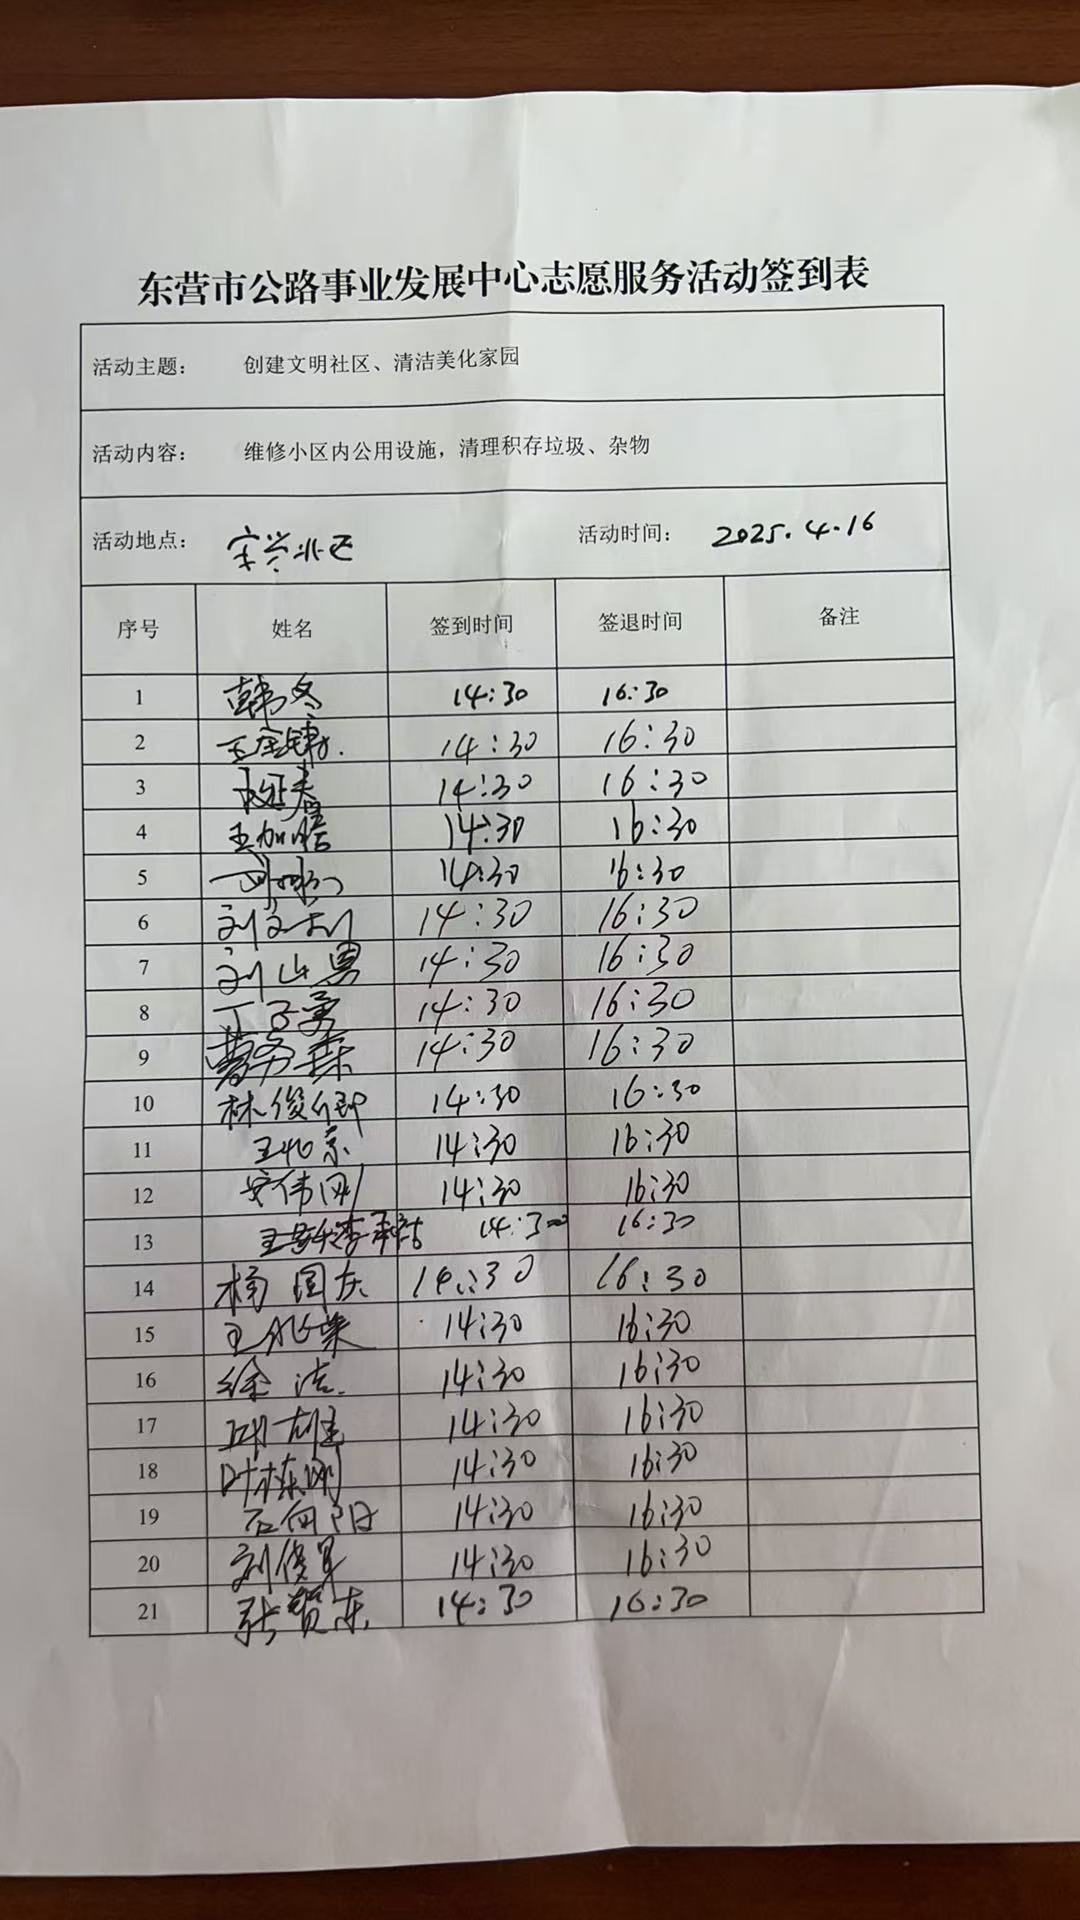 东营市公路事业发展中心志愿服务活动签到表
活动主题： 创建文明社区、清洁美化家园
活动内容： 维修小区内公用设施，清理积存垃圾、杂物
活动地点： 宏兴小区 活动时间： 2025.4.16
序号 姓名 签到时间 签退时间 备注
1 韩冬 14:30 16:30
2 14:30 16:30
3 14:30 16:30
4 王加晗 14:30 16:30
5 14:30 16:30
6 刘 14:30 16:30
7 刘山勇 14:30 16:30
8 丁子勇 14:30 16:30
9 14:30 16:30
10 林俊卿 14:30 16:30
11 14:30 16:30
12 安伟刚 14:30 16:30
13 14:30 16:30
14 杨国庆 14:30 16:30
15 14:30 16:30
16 徐洁 14:30 16:30
17 14:30 16:30
18 叶栋刚 14:30 16:30
19 石向阳 14:30 16:30
20 刘俊军 14:30 16:30
21 张贺东 14:30 16:30